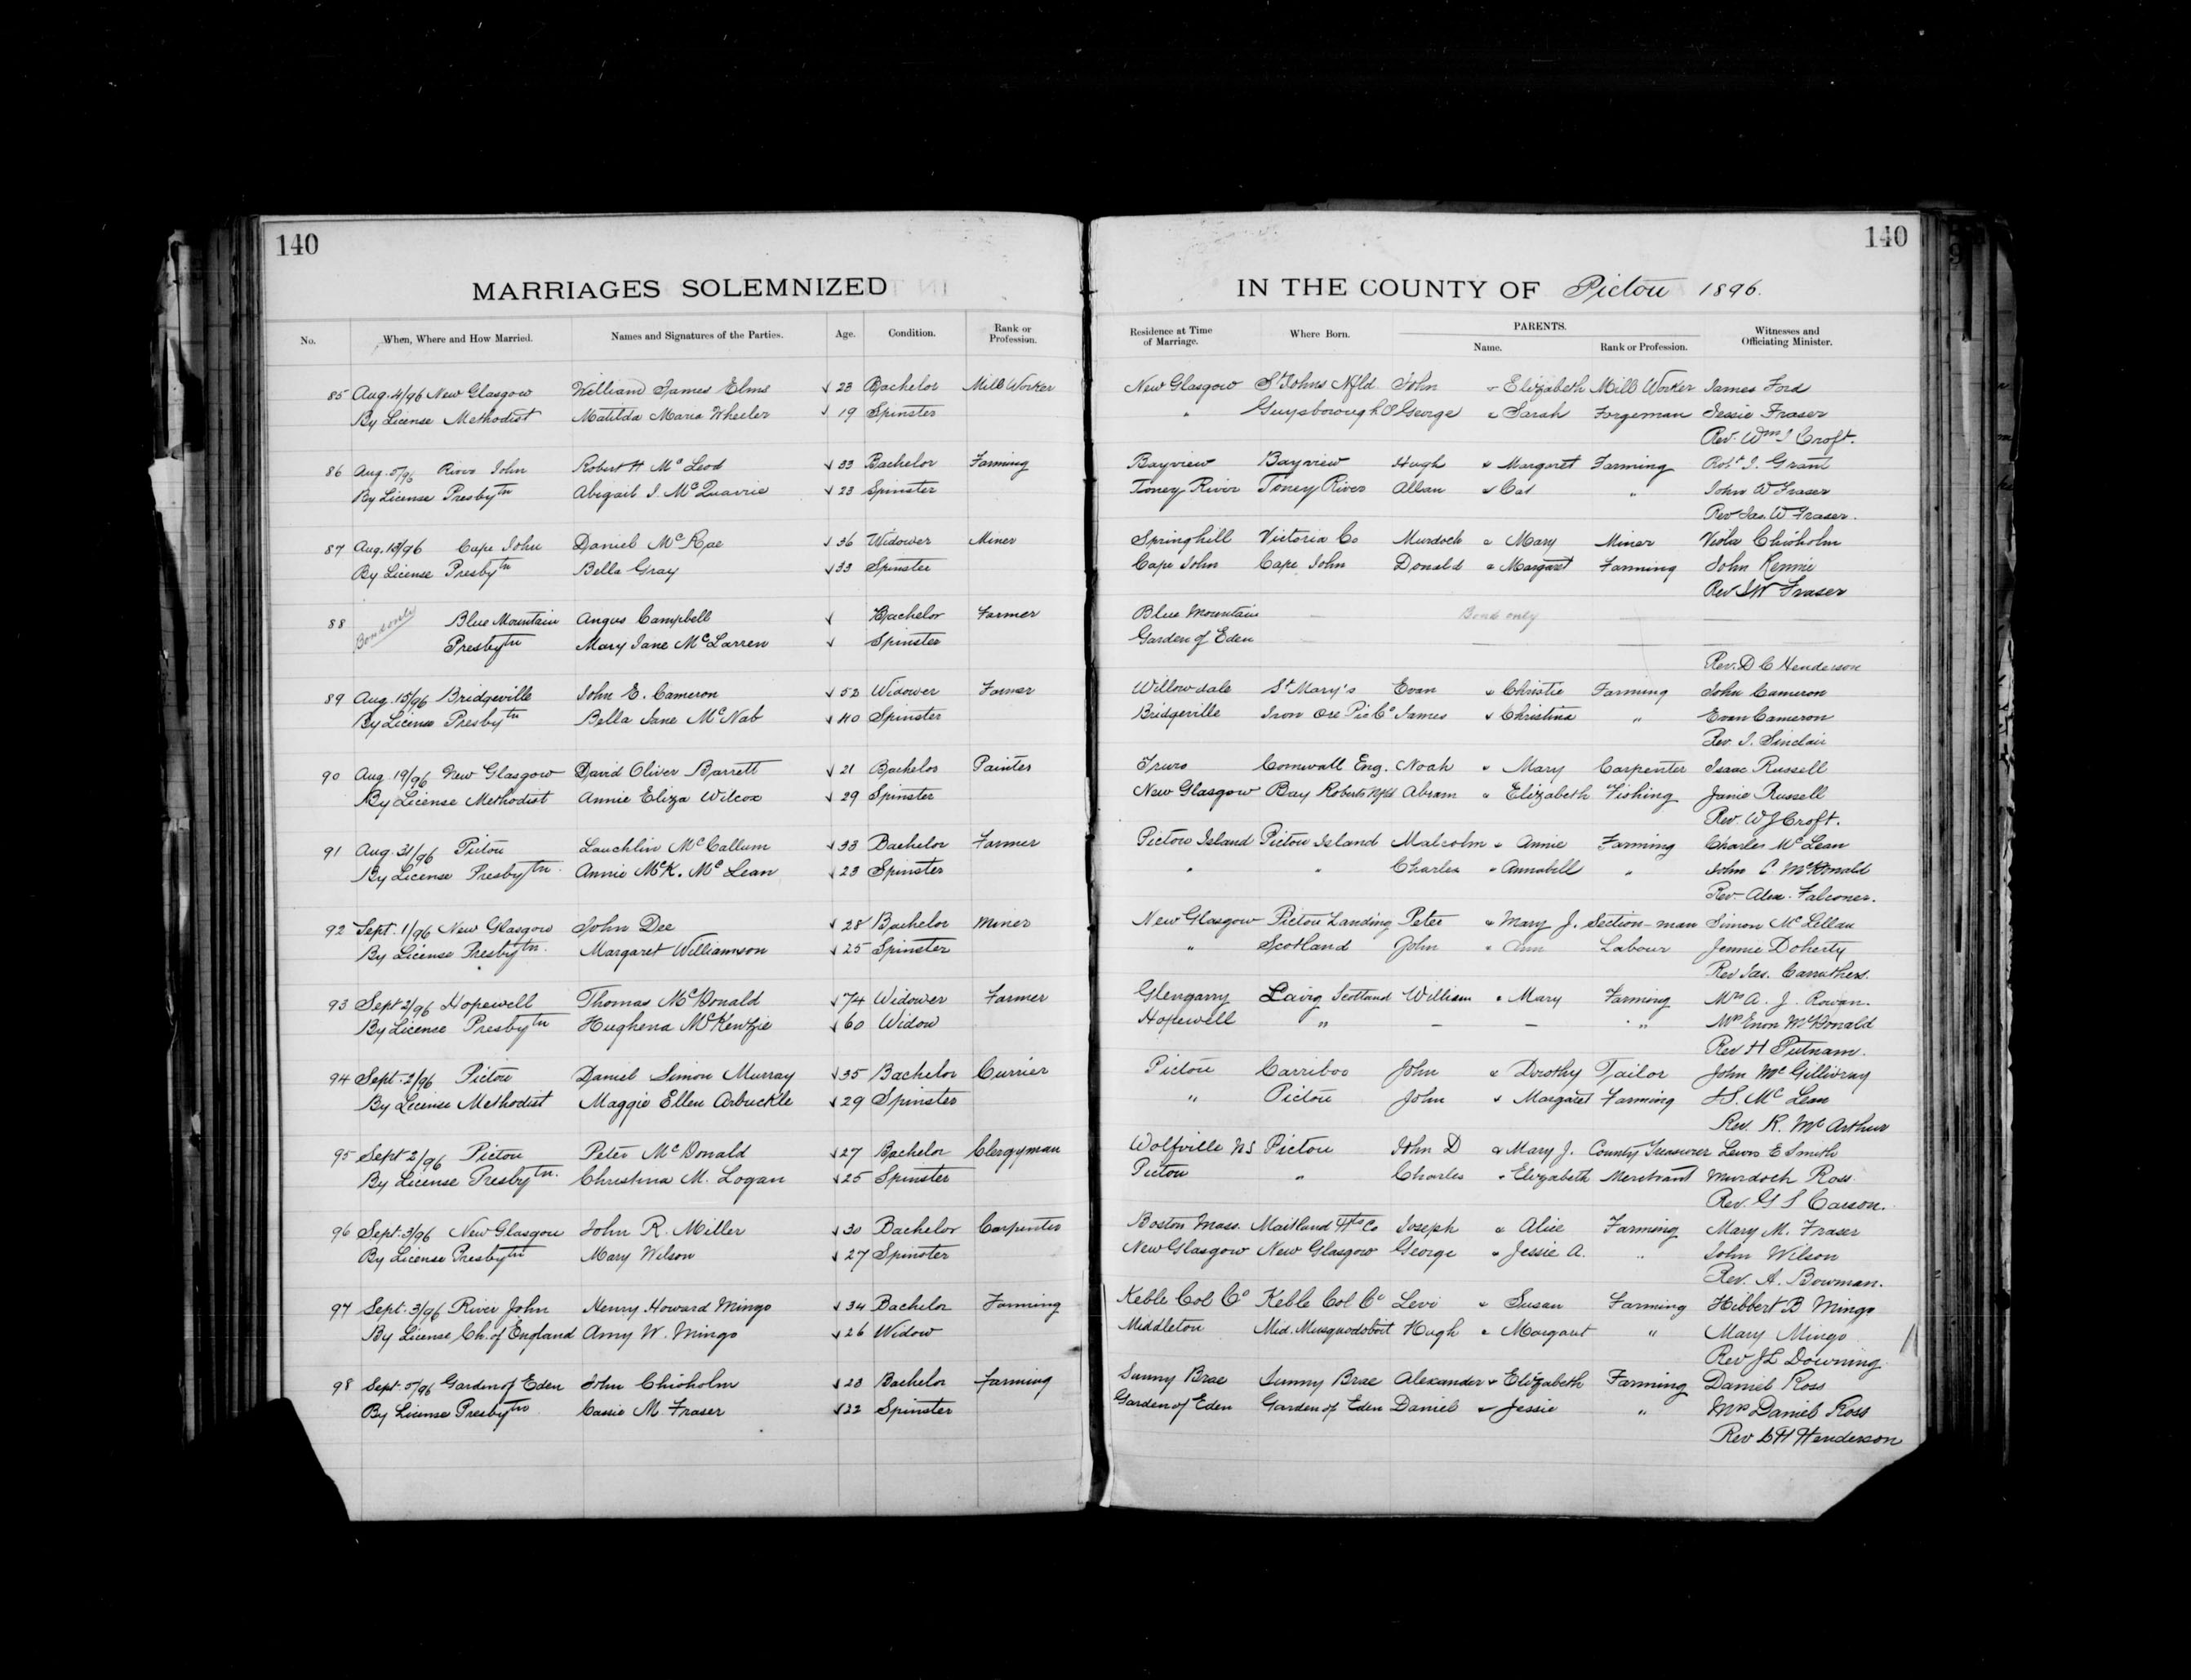 140
140
MARRIAGES SOLEMNIZED IN THE COUNTY OF Pictou 1896.
No. When, Where and How Married. Names and Signatures of the Parties. Age. Condition. Rank or Profession. Residence at Time of Marriage. Where Born. PARENTS. Name. Rank or Profession. Witnesses and Officiating Minister.
85 Aug. 4/96 New Glasgow William James Elms √ 23 Bachelor Mill Worker New Glasgow St Johns Nfld. John & Elizabeth Mill Worker James Ford
By License Methodist Matilda Maria Wheeler √ 19 Spinster " Guysborough George & Sarah Forgeman Jessie Fraser
Rev. Wm J Croft.
86 Aug. 5/96 River John Robert H McLeod √ 33 Bachelor Farming Bayview Bayview Hugh & Margaret Farming Robt J. Grant
By License Presbytn Abigail J. McQuarrie √ 23 Spinster Toney River Toney River Allan & Cat " John W Fraser
Rev Jas. W Fraser.
87 Aug. 13/96 Cape John Daniel McRae √ 36 Widower Miner Springhill Victoria Co Murdoch & Mary Miner Viola Chisholm
By License Presbytn Bella Gray √ 33 Spinster Cape John Cape John Donald & Margaret Farming John Rennie
Rev J W Fraser
88 Bond only Blue Mountain Angus Campbell √ Bachelor Farmer Blue Mountain — Bond only — —
Presbytn Mary Jane McLarren √ Spinster Garden of Eden — — —
Rev. D C Henderson
89 Aug. 15/96 Bridgeville John E. Cameron √ 52 Widower Farmer Willowdale St Mary's Evan & Christie Farming John Cameron
By License Presbytn Bella Jane McNab √ 40 Spinster Bridgeville Iron Ore Pic Co James & Christina " Evan Cameron
Rev. J. Sinclair
90 Aug. 19/96 New Glasgow David Oliver Barrett √ 21 Bachelor Painter Truro Cornwall Eng. Noah & Mary Carpenter Isaac Russell
By License Methodist Annie Eliza Wilcox √ 29 Spinster New Glasgow Bay Roberts Nfld Abram & Elizabeth Fishing Janie Russell
Rev. W J Croft.
91 Aug. 31/96 Pictou Lauchlin McCallum √ 33 Bachelor Farmer Pictou Island Pictou Island Malcolm & Annie Farming Charles McLean
By License Presbytn. Annie McK. McLean √ 23 Spinster " " Charles & Annabell " John C. McDonald
Rev. Alex. Falconer.
92 Sept. 1/96 New Glasgow John Dee √ 28 Bachelor Miner New Glasgow Pictou Landing Peter & Mary J. Section-man Simon McLellan
By License Presbytn. Margaret Williamson √ 25 Spinster " Scotland John & Ann Labour Jennie Doherty
Rev Jas. Carruthers.
93 Sept 2/96 Hopewell Thomas McDonald √ 74 Widower Farmer Glengarry Lairg Scotland William & Mary Farming Mrs A. J. Rowan.
By License Presbytn Hughena McKenzie √ 60 Widow Hopewell " – – " Mrs Enon McDonald
Rev H Putnam.
94 Sept. 2/96 Pictou Daniel Simon Murray √ 35 Bachelor Currier Pictou Carriboo John & Dorothy Tailor John McGillivray
By License Methodist Maggie Ellen Arbuckle √ 29 Spinster " Pictou John & Margaret Farming J S. McLean
Rev. R. McArthur
95 Sept 2/96 Pictou Peter McDonald √ 27 Bachelor Clergyman Wolfville NS Pictou John D & Mary J. County Treasurer Lewis E Smith
By License Presbytn. Christina M. Logan √ 25 Spinster Pictou " Charles & Elizabeth Merchant Murdoch Ross
Rev. G S Carson.
96 Sept. 3/96 New Glasgow John R. Miller √ 30 Bachelor Carpenter Boston Mass. Maitland Hts Co Joseph & Alice Farming Mary M. Fraser
By License Presbytn Mary Wilson √ 27 Spinster New Glasgow New Glasgow George & Jessie A. " John Wilson
Rev. A. Bowman.
97 Sept. 3/96 River John Henry Howard Mingo √ 34 Bachelor Farming Keble Col Co Keble Col Co Levi & Susan Farming Hibbert B Mingo
By License Ch. of England Amy W. Mingo √ 26 Widow Middleton Mid. Musquodoboit Hugh & Margaret " Mary Mingo
Rev J L Downing
98 Sept. 5/96 Garden of Eden John Chisholm √ 23 Bachelor Farming Sunny Brae Sunny Brae Alexander & Elizabeth Farming Daniel Ross
By License Presbytn Cassie M. Fraser √ 22 Spinster Garden of Eden Garden of Eden Daniel & Jessie " Mrs Daniel Ross
Rev D H Henderson